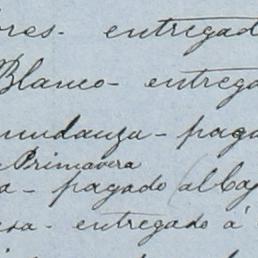 ores- entregad
Blanco- entrega
mudanza- paga
Primavera
a- pagado (al Caj
sa- entregado á